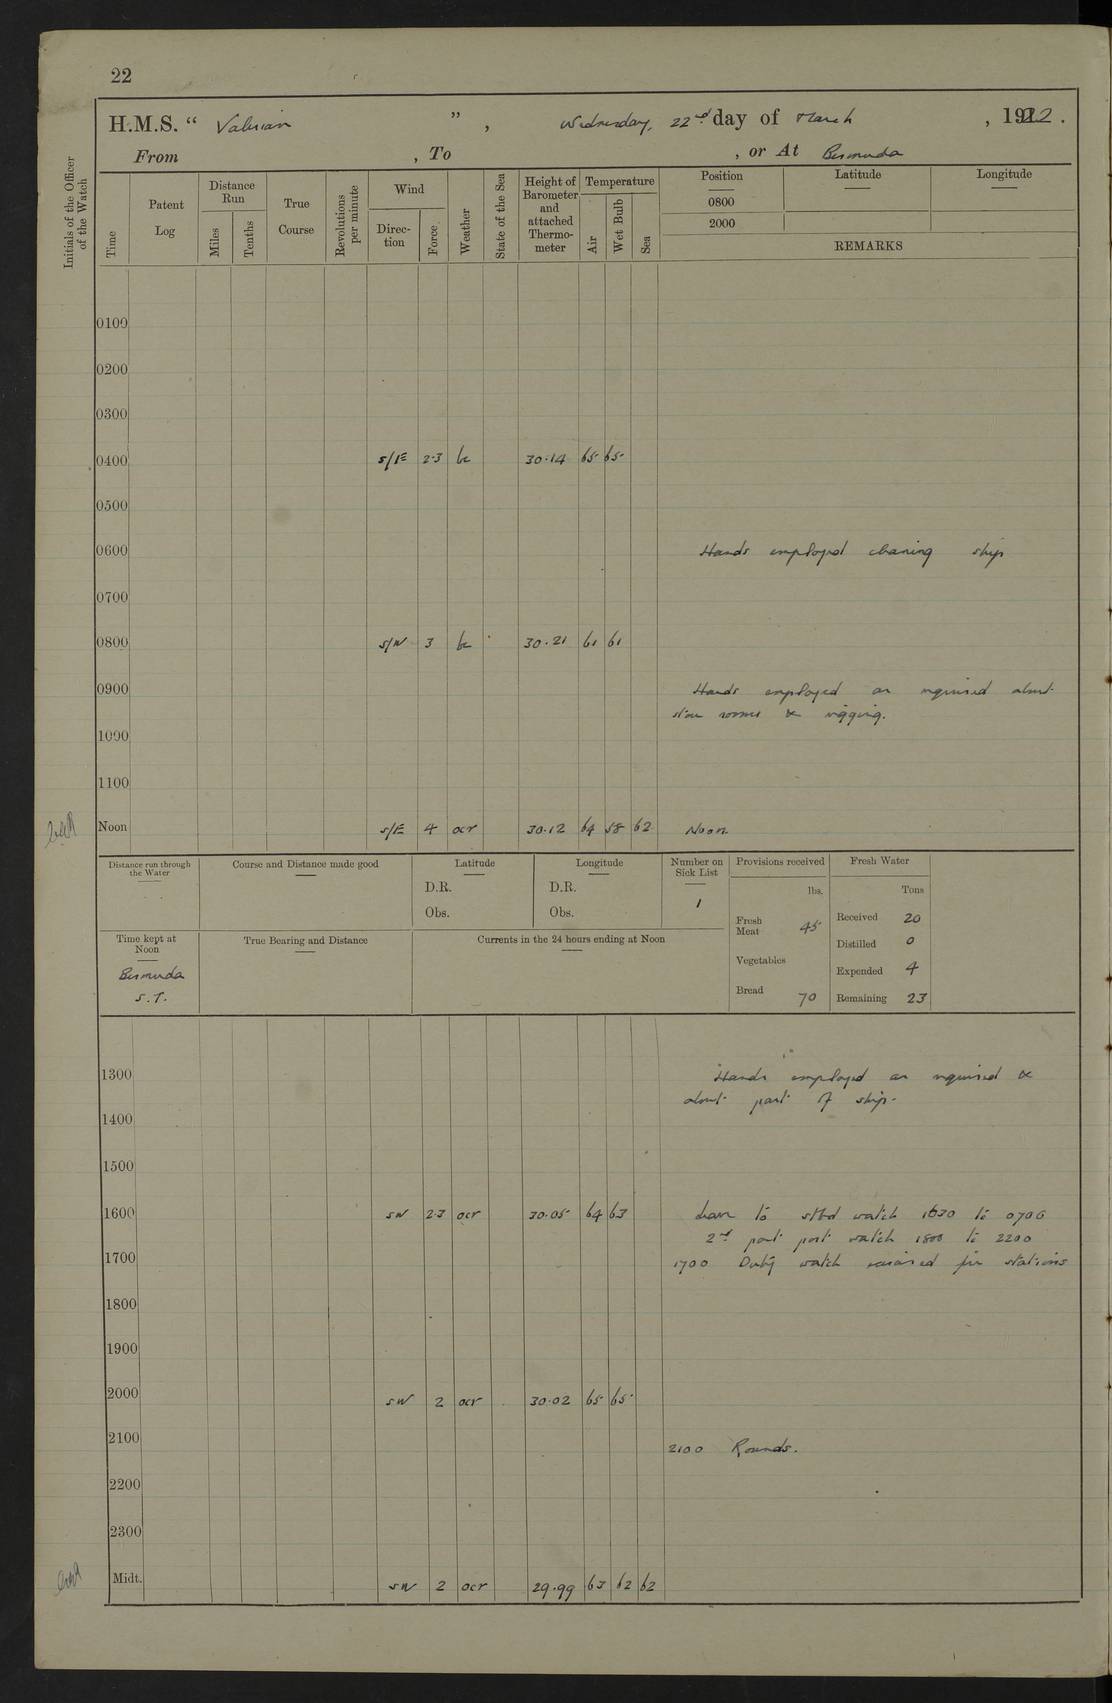 22
H.M.S. “ Valerian ” , Wednesday, 22nd day of March , 1922 .
From , To , or At Bermuda
Initials of the Officer of the Watch
Time
Patent Log
Distance Run
Miles
Tenths
True Course
Revolutions per minute
Wind
Direc-tion
Force
Weather
State of the Sea
Height of Barometer and attached Thermo-meter
Temperature
Air
Wet Bulb
Sea
Position Latitude Longitude
0800
2000
REMARKS
0100
0200
0300
0400 S/E 2·3 bc 30·14 65 65
0500
0600 Hands employed cleaning ship
0700
0800 S/W 3 bc 30·21 61 61
0900 Hands employed as required about
store rooms & rigging.
1000
1100
Noon S/E 4 ocr 30·12 64 58 62 Noon
Distance run through the Water
Course and Distance made good
Latitude
D.R.
Obs.
Longitude
D.R.
Obs.
Number on Sick List
1
Provisions received
lbs.
Fresh Meat 45
Vegetables
Bread 70
Fresh Water
Tons
Received 20
Distilled 0
Expended 4
Remaining 23
Time kept at Noon
Bermuda
S.T.
True Bearing and Distance
Currents in the 24 hours ending at Noon
1300 Hands employed as required &
about part of ship.
1400
1500
1600 SW 2·3 ocr 30·05 64 63 Leave to stbd watch 1630 to 0700
2nd part port watch 1800 to 2200
1700 1700 Duty watch exercised fire stations
1800
1900
2000 SW 2 ocr 30·02 65 65
2100 2100 Rounds.
2200
2300
Midt. SW 2 ocr 29·99 63 62 62